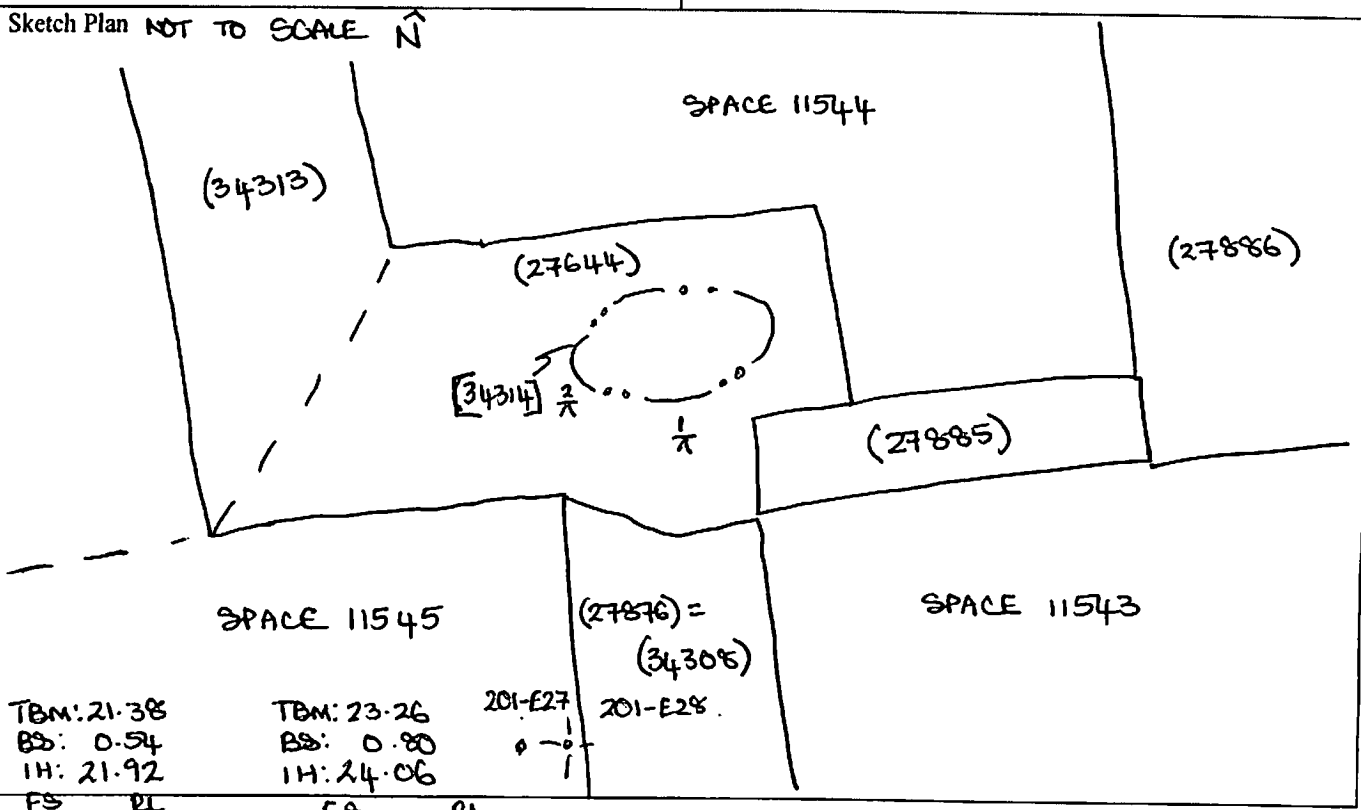 Sketch Plan NOT TO SCALE N
SPACE 11544
(34313)
(27644)
(27886)
[34314] 2
1
(27885)
SPACE 11545
(27876) =
(34308)
SPACE 11543
TBM: 21.38
BS: 0.54
IH: 21.92
FS RL
TBM: 23.26
BS: 0.80
IH: 24.06
FS RL
201-E27
201-E28.